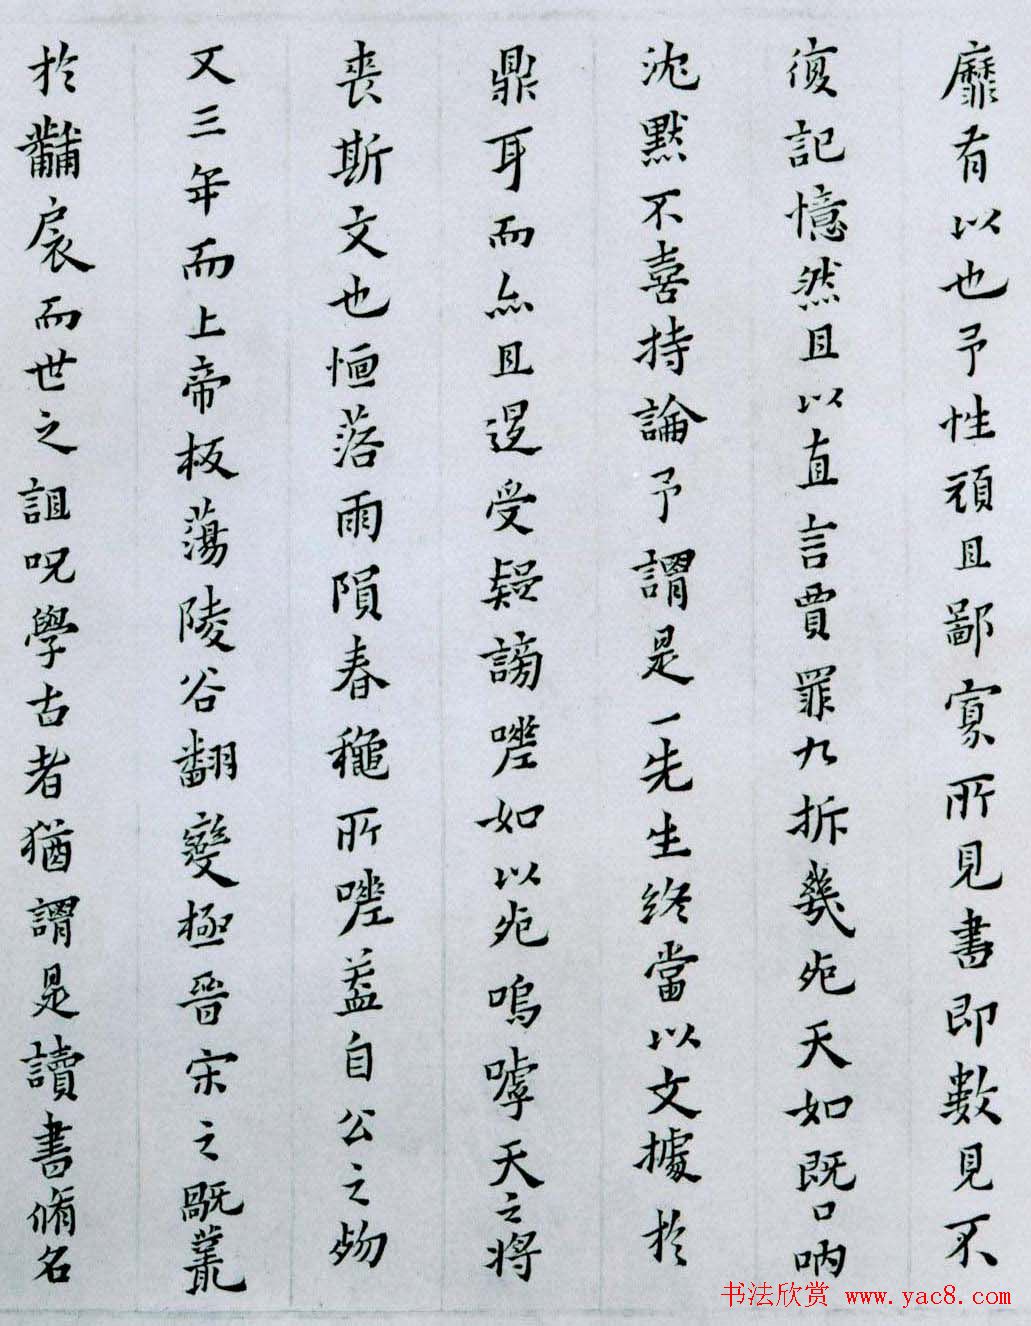 靡有以也予性頑且鄙寡所見書即數見不
復記憶然且以直言賈罪九拆幾死天如既口吶
沈默不喜持論予謂是一先生終當以文據於
鼎耳而亦且遝受疑謗嗟如以死嗚嘑天之將
喪斯文也恒落雨隕春龝所嗟葢自公之歾
又三年而上帝板蕩陵谷翻變極晉宋之
於黼扆而世之詛呪學古者猶謂是讀書脩名
书法欣赏 www.yac8.com